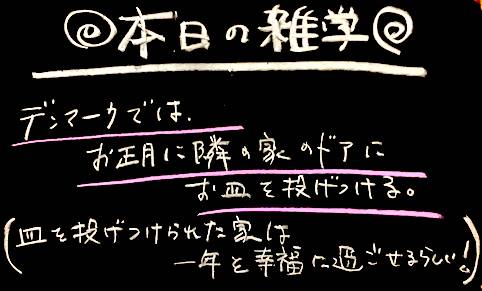 本日の雑学
デンマークでは、
お正月に隣の家のドアに
お皿を投げつける。
(皿を投げつけられた家は
一年を幸福に過ごせるらしい!)